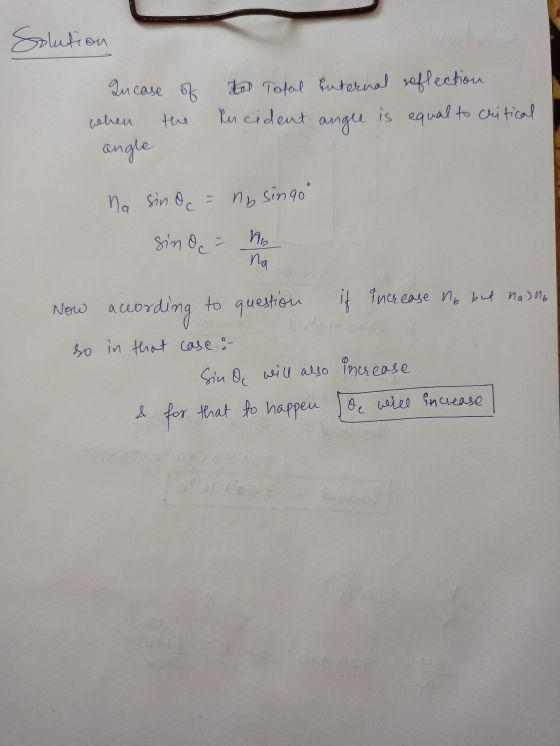 Solution
Incase of Total Internal reflection
when the Incident angle is equal to critical
angle
na sin θc = nb sin90°
sin θc = nb/na
Now according to question if increase nb but na>nb
so in that case :-
Sin θc will also increase
& for that to happen θc will increase